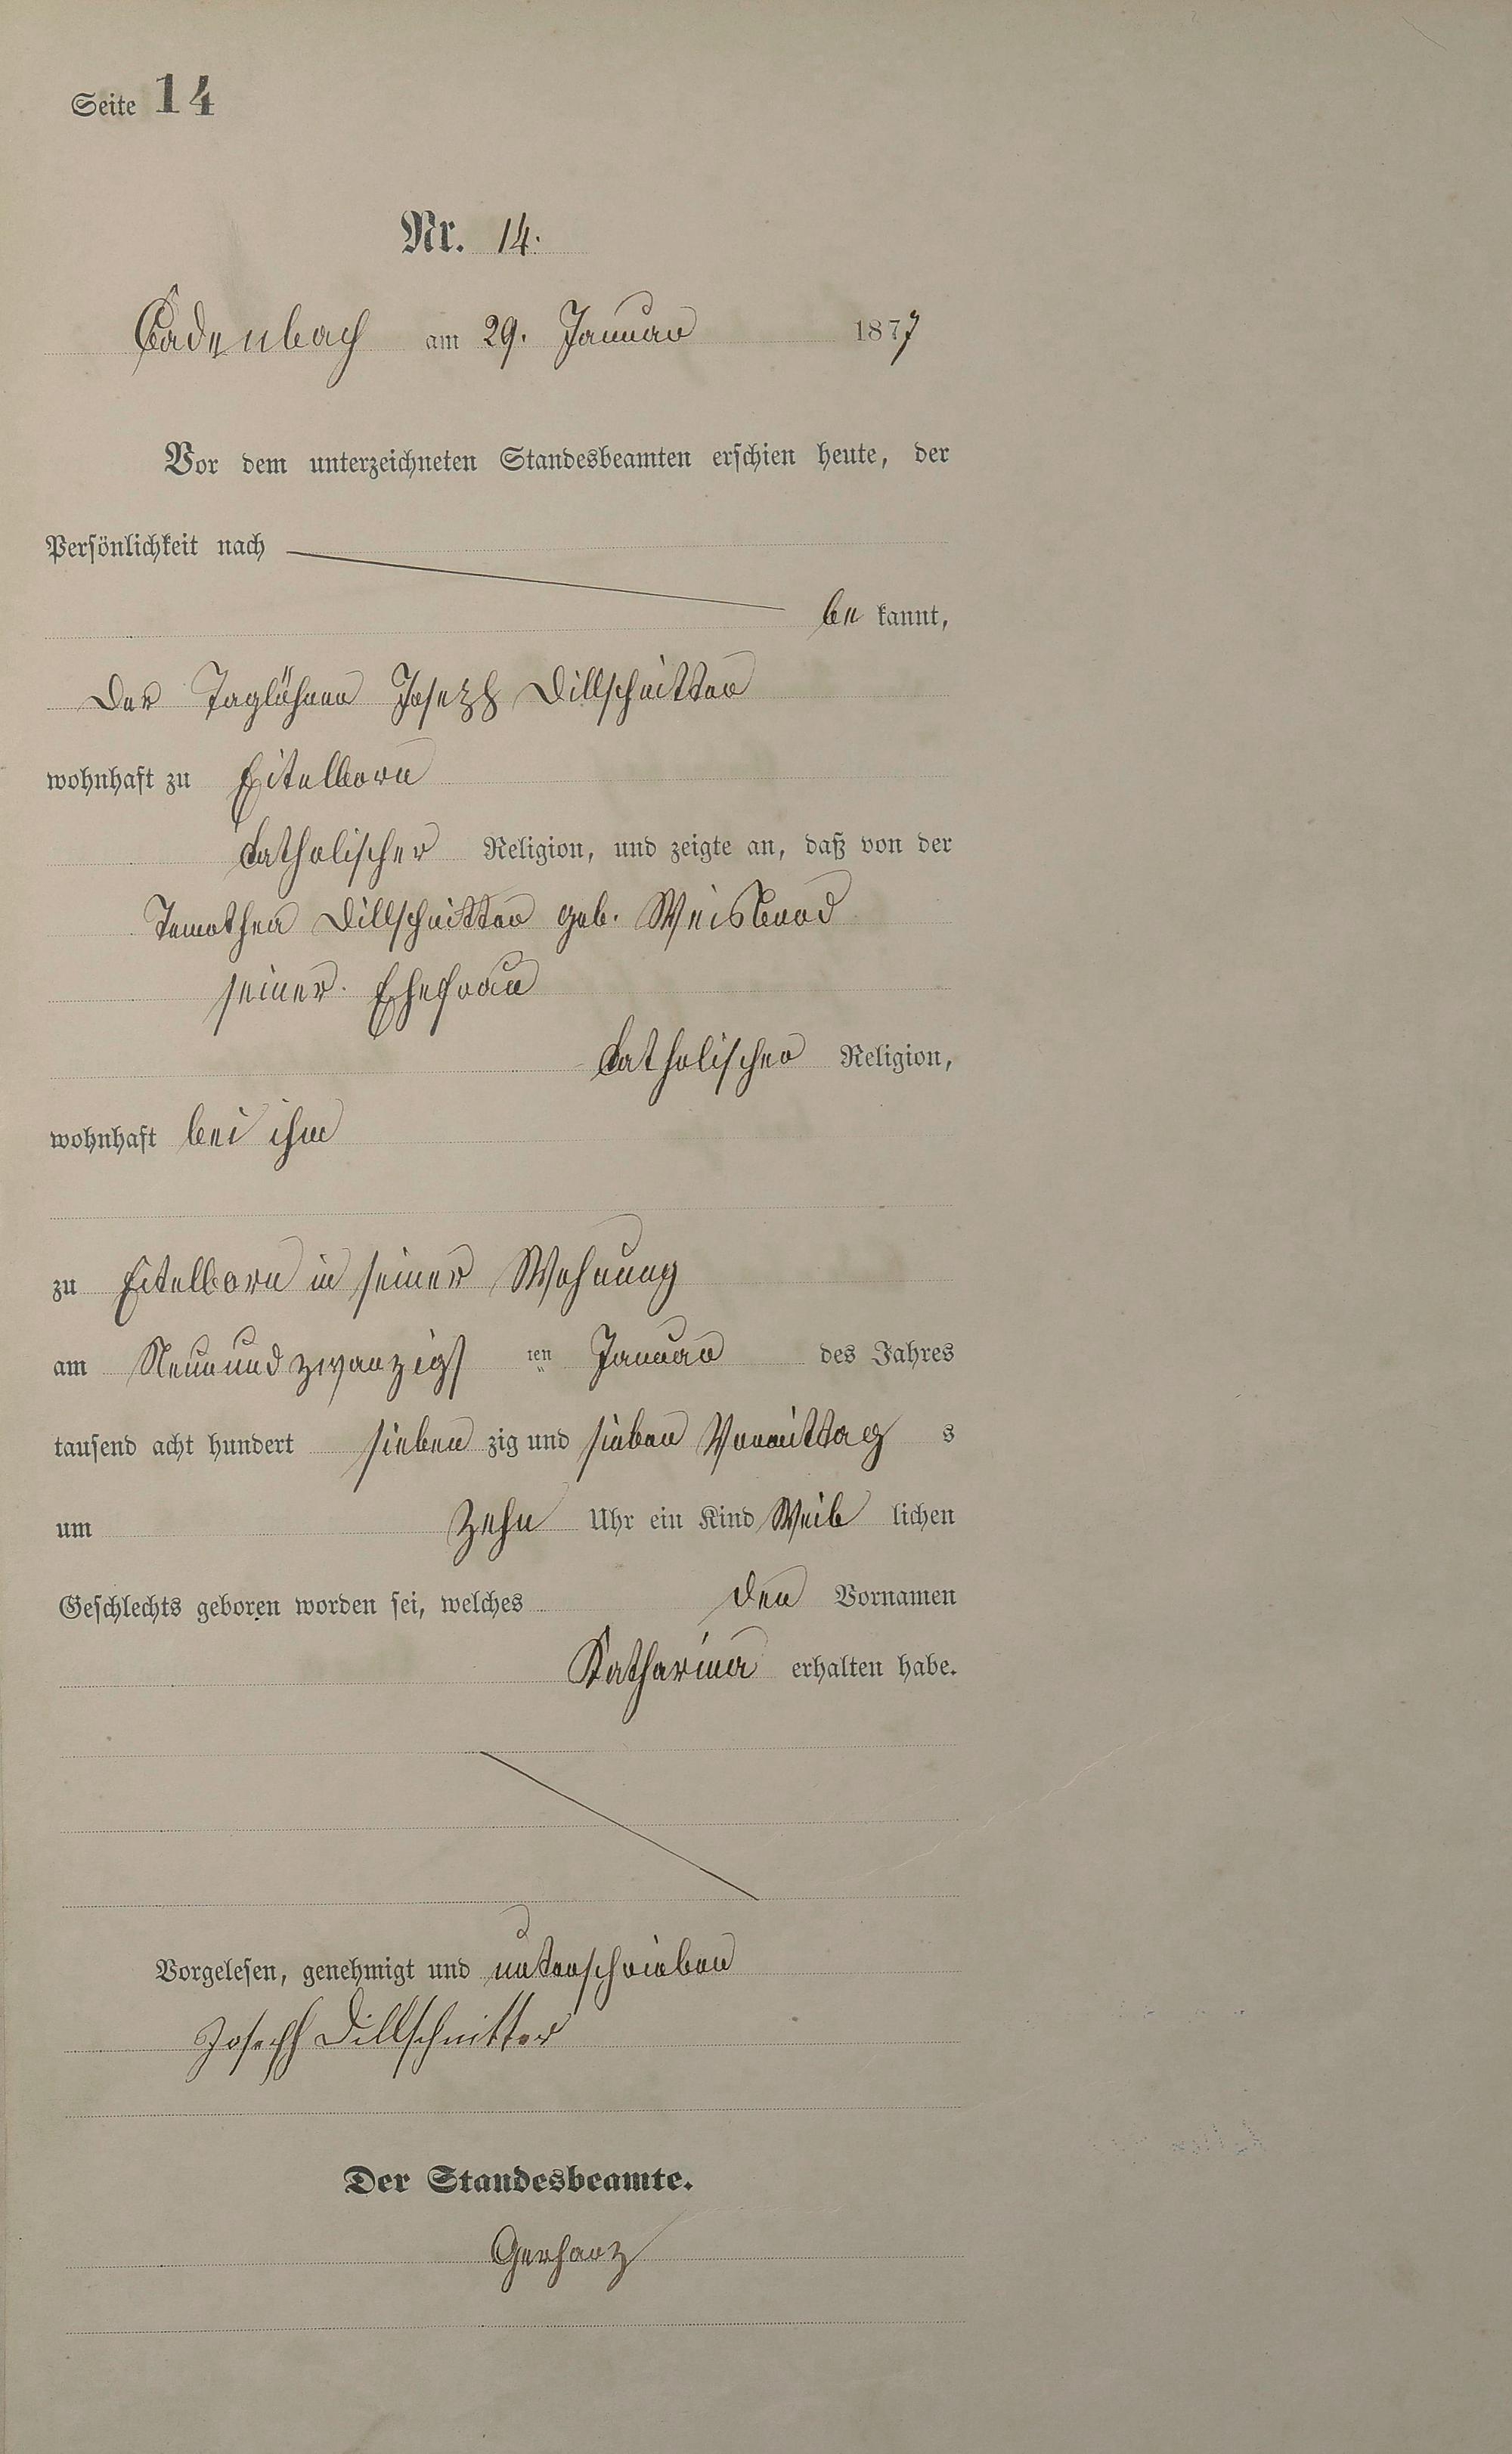 Seite 14
Nr. 14.
Cadenbach am 29. Januar 1877
Vor dem unterzeichneten Standesbeamten erschien heute, der
Persönlichkeit nach
be kannt,
Der Taglöhner Joseph Dillschnitter
wohnhaft zu Eitelborn
katholischer Religion, und zeigte an, daß von der
Timothea Dillschnitter geb. Weisbrod
seiner Ehefrau
katholischer Religion,
wohnhaft bei ihm
zu Eitelborn in seiner Wohnung
am Neunundzwanzigs ten Januar des Jahres
tausend acht hundert sieben zig und sieben Vormittag s
um Zehn Uhr ein Kind Weib lichen
Geschlechts geboren worden sei, welches den Vornamen
Katharina erhalten habe.
Vorgelesen, genehmigt und unterschrieben
Joseph Dillschnitter
Der Standesbeamte.
Gerharz